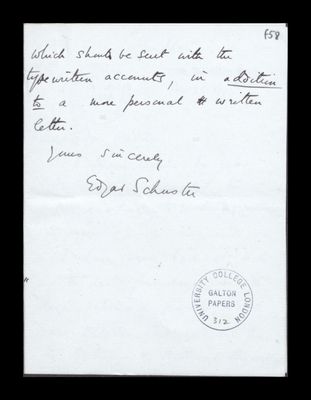 f58
which should be sent with the
typewritten accounts, in addition
to a more personal written
letter.
Yours sincerely
Edgar Schuster
UNIVERSITY COLLEGE LONDON
GALTON
PAPERS
312